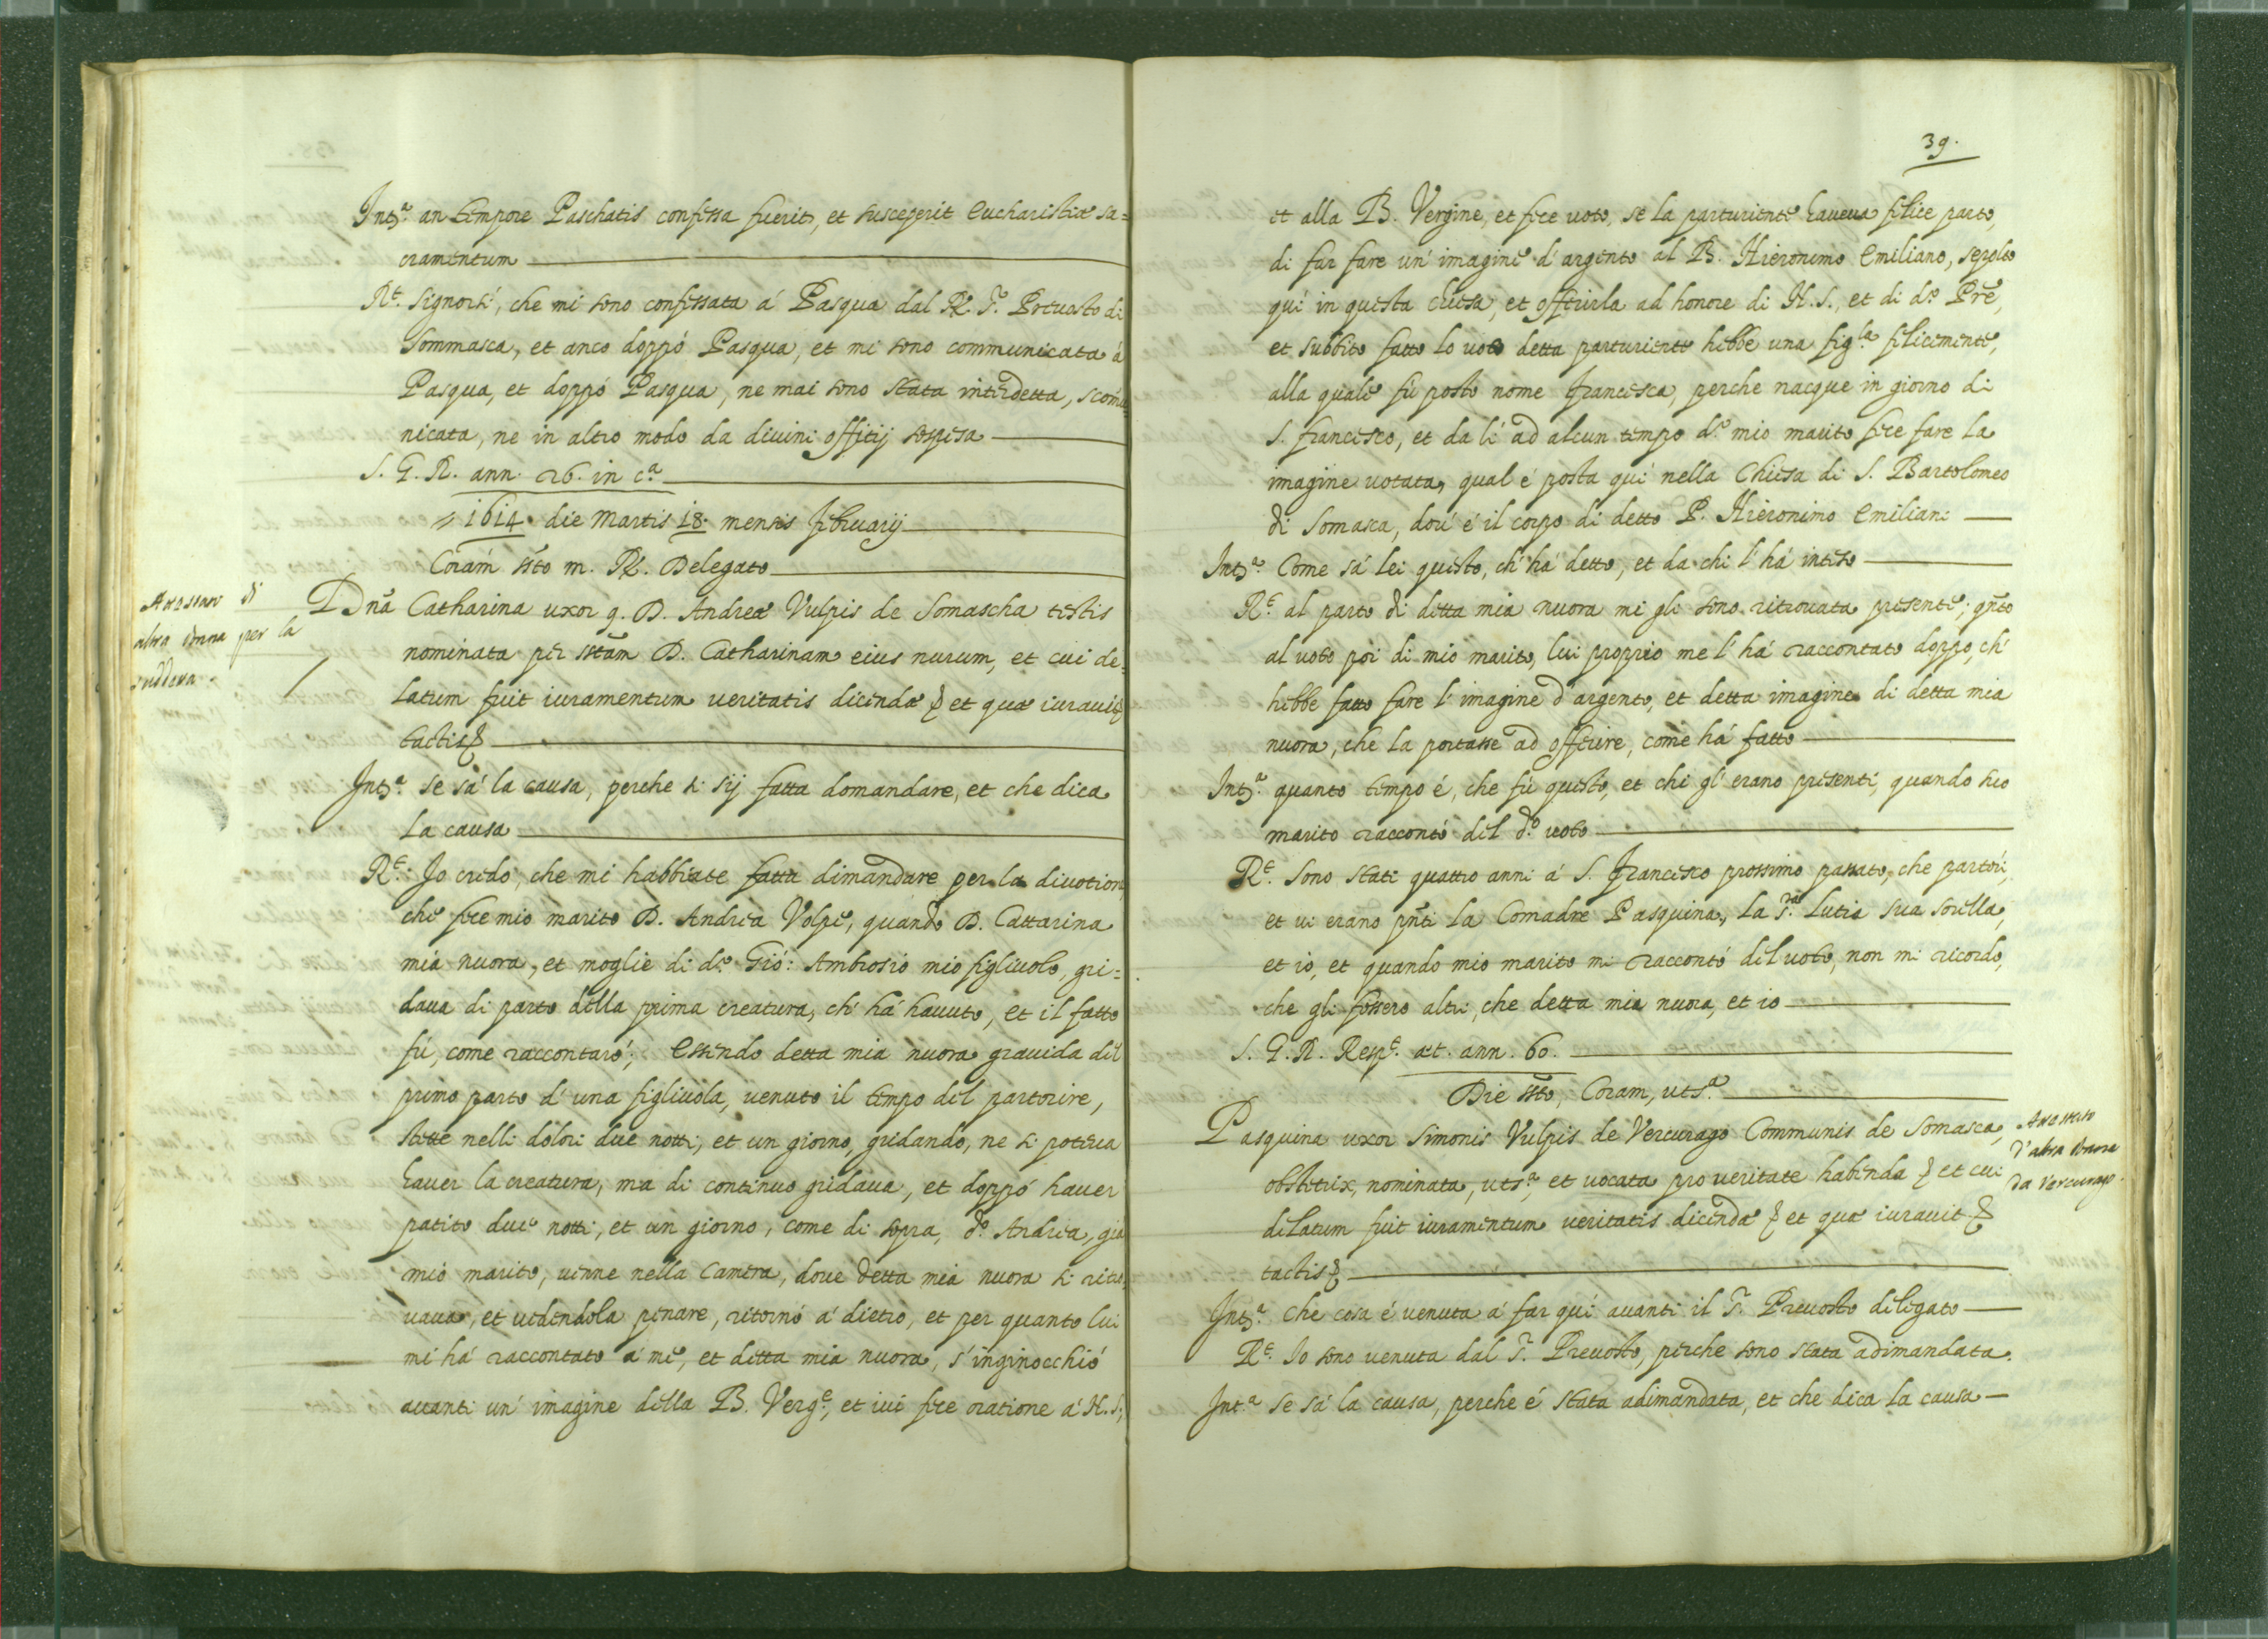 Int.ª an tempore Paschatis confessa fuerit, et susceperit Eucharistiæ sa=
cramentum
R.t Signorsi, che mi sono confessata á Pasqua dal R. S.r Prevosto di
Sommasca, et anco doppó Pasqua, et mi sono communicata á
Pasqua, et doppó Pasqua, ne mai sono stata interdetta, scõmu
nicata, ne in altro modo da divini offitij sospesa
S. G. R. ann. 26. in c.ª
1614. die Martis 18. mensis februarij
Coram ss.to m. R. Delegato
D Dnã Catharina uxor q. D. Andreæ Vulpis de Somascha testis
nominata per sstãm D. Catharinam eius nurum, et cui de=
latum fuit iuramentum veritatis dicendæ et quæ iuravit
tactis
Int.ª se sá la causa, perche si sij fatta domandare, et che dica
la causa
R.t Jo credo, che mi habbiate fatta dimandare per la divotion,
che fece mio marito D. Andrea Volpe, quando D. Cattarina
mia nuora, et moglie di d.º Gió: Ambrosio mio figlivolo, gri=
dava di parto della prima creatura, ch' há havuto, et il fatto
fú, come raccontaró; Essendo detta mia nuora gravida del
primo parto d' una figlivola, venuto il tempo del partorire,
stette nelli dolori due notti, et un giorno, gridando, ne si poteva
haver la creatura, ma di continuo gridava, et doppó haver
patito due notti, et un giorno, come di sopra, d.º Andrea, giá
mio marito, venne nella Camera, dove detta mia nuora si ritro
vava, et vedendola penare, ritornó á dietro, et per quanto lui
mi há raccontato á me, et detta mia nuora, s' inginocchió
avanti un' imagine della B. Verg.e, et ivi fece oratione á N. S.,
altra donna per la
suddeta.
39.
et alla B. Vergine, et fece voto, se la parturiente haveva felice parto,
di far fare un' imagine d' argento al B. Hieronimo Emiliano, sepolto
quí in questa chiesa, et offerirla ad honore di N. S., et di d.º Prẽ,
et subbito fatto lo voto detta parturiente hebbe una fig.la felicemente,
alla quale fú posto nome Francesca, perche nacque in giorno di
S. Francesco, et da lí ad alcun tempo d.º mio marito fece fare la
imagine votata, qual é posta quí nella Chiesa di S. Bartolomeo
di Somasca, dov' é il corpo di detto P. Hieronimo Emiliani
Int.ª Come sá lei questo, ch' há detto, et da chi l' há inteso
R.t al parto di detta mia nuora mi gli sono ritrovata presente; qñto
al voto poi di mio marito, lui proprio me l' há raccontato doppo, ch'
hebbe fatto fare l' imagine d' argento, et detta imagine di detta mia
nuora, che la portasse ad offerire, come há fatto
Int.ª quanto tempo é, che fú questo, et chi gl' erano presenti, quando suo
marito raccontó del d.º voto
R.t Sono stati quattro anni á S. Francesco prossimo passato, che partorí,
et vi erano pñti la Comadre Pasquina, la S.ra Lutia sua sorella,
et io, et quando mio marito mi raccontó del voto, non mi ricordo,
che gli fossero altri, che detta mia nuora, et io
S. G. R. Resp.t æt. ann. 60.
Die ssto, Coram, uts.ª
Pasquina uxor Simonis Vulpis de Vercurago Communis de Somasca,
obstetrix, nominata, uts.ª, et vocata pro veritate habenda et cui
delatum fuit iuramentum veritatis dicendæ et quæ iuravit
tactis
Int.ª Che cosa é venuta á far quí avanti il S.r Prevosto delegato
R.t Jo sono venuta dal S.r Prevosto, perche sono stata adimandata.
Int.ª se sá la causa, perche é stata adimandata, et che dica la causa
d' altra donna
da Vercurago.